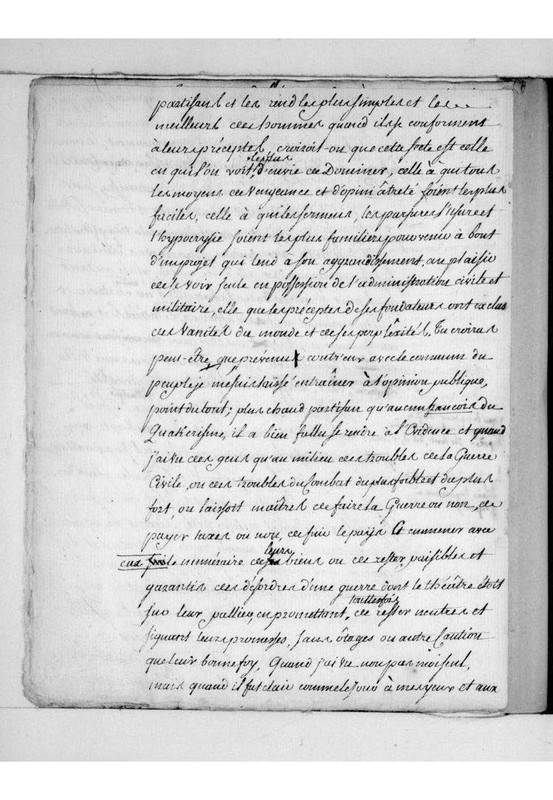 partisans et les rend les plus simples et les
meilleurs des hommes quand ils se conforment
à leurs préceptes, croiroit-on que cette secte est celle
en qui l'on voit le plus d'envie de Dominer, celle à qui tous
les moyens de Vengeance et d'opiniâtreté soient les plus
faciles, celle à qui les sermens, les parjures l'usure et
l'hypocrysie soient les plus familiers pour venir à bout
d'un projet qui tend à son aggrandissement, au plaisir
de se voir seule en possession de l'administration civile et
militaire, elle que les préceptes de ses fondateurs ont exclus
des Vanités du monde et de ses perplexités. Tu croiras
peut-être que prévenu contr'eux avec le commun du
peuple je me suis laissé entraîner à l'opinion publique,
point du tout; plus chaud partisan qu'aucun françois du
Quakerisme, il a bien fallu se rendre à l'Evidence et quand
j'ai vu ces gens qu'au milieu des troubles de la Guerre
Civile, ou des troubles du Combat du plus foible et du plus
fort, on laissoit maîtres de faire la Guerre ou non, de
payer taxes ou non, de fuir le pays Et emmener avec
eux le numéraire de leurs biens ou de rester paisibles et
garantis des désordres d'une guerre dont le théâtre étoit
sur leur pallier, en promettant toutefois de rester neutres et
signant leurs promesses, sans ôtages ou autre Caution
que leur bonne foy, Quand j'ai vu non pas moi seul,
mais quand il fut clair comme le jour à mes yeux et aux